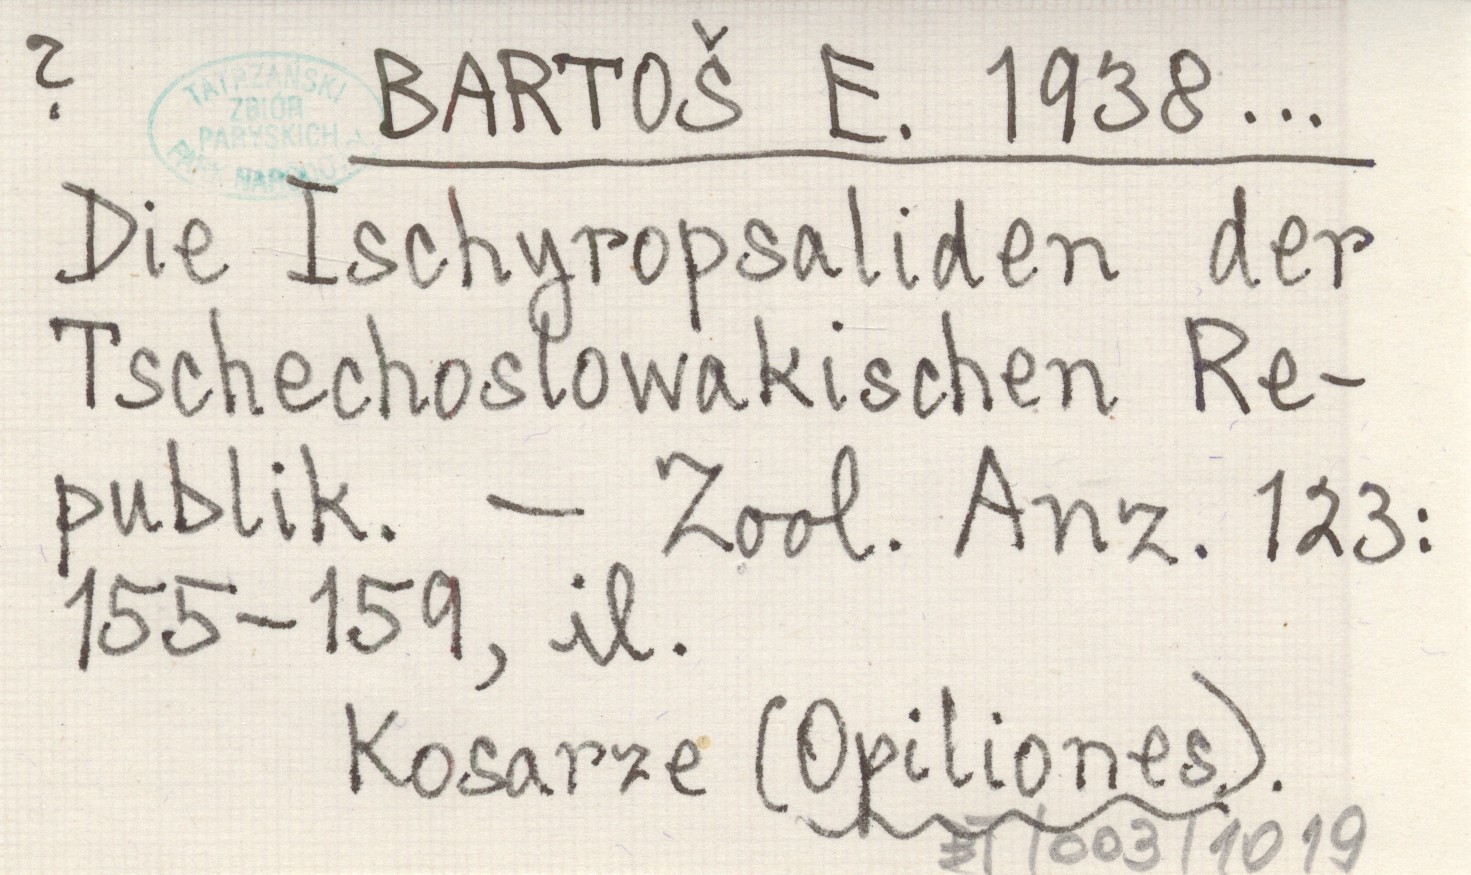 ?
BARTOŠ E. 1938...
TATRZAŃSKI
ZBIÓR
PARYSKICH
Die Ischyropsaliden der
Tschechoslowakischen Re-
publik. — Zool. Anz. 123:
155-159, il.
Kosarze (Opiliones).
/003/1019